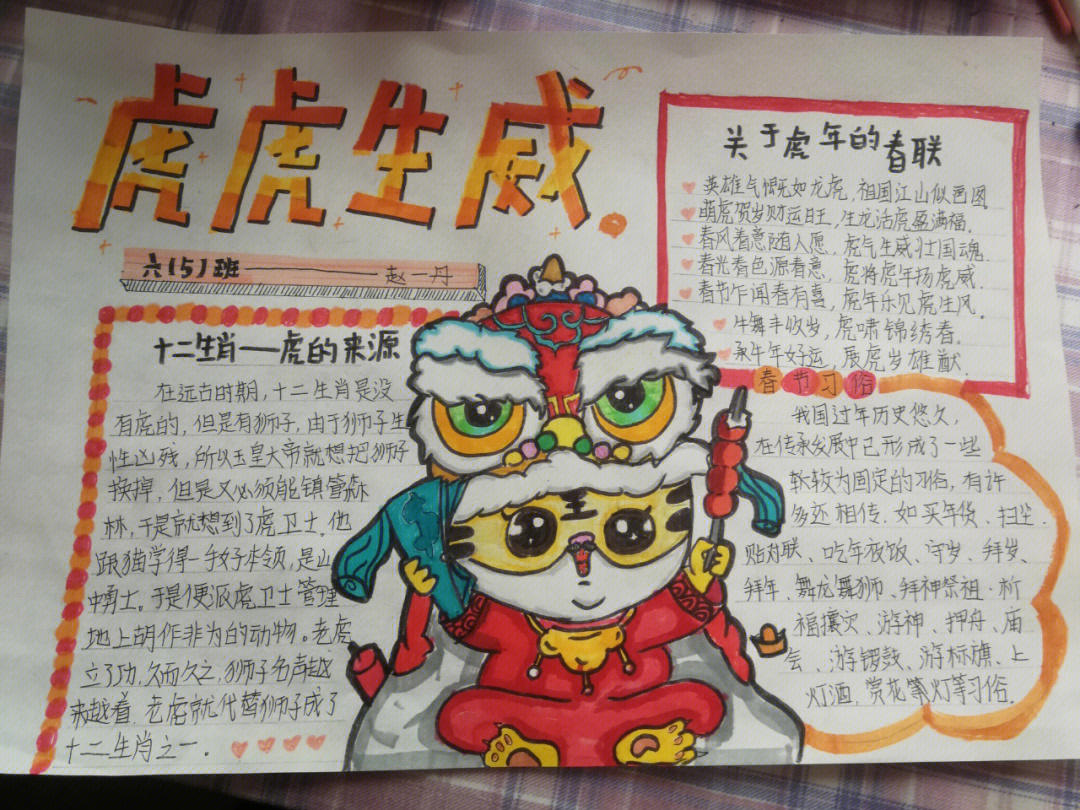 虎虎生威
六(5)班
赵一丹
十二生肖——虎的来源
在远古时期,十二生肖是没
有虎的,但是有狮子,由于狮子生
性凶残,所以玉皇大帝就想把狮子
换掉,但是又必须能镇管森
林,于是就想到了虎卫士。他
跟猫学得一手好本领,是山
中勇士。于是便派虎卫士管理
地上胡作非为的动物。老虎
立了功,久而久之,狮子名声越
来越着,老虎就代替狮子成了
十二生肖之一.
关于虎年的春联
英雄气慨如龙虎,祖国江山似画图
萌虎贺岁财运旺,生龙活虎盈满福.
春风春意随人愿,虎气生威壮国魂.
春光春色源春意,虎将虎年扬虎威.
春节乍闻春有喜,虎年乐见虎生风.
牛舞丰收岁,虎啸锦绣春.
承牛年好运,展虎岁雄猷.
春节习俗
我国过年历史悠久,
在传承发展中已形成了一些
较为固定的习俗,有许
多还相传.如买年货、扫尘.
贴对联、吃年夜饭、守岁、拜岁、
拜年、舞龙舞狮、拜神祭祖·祈
福攘灾、游神、押舟、庙
会、游锣鼓、游标旗、上
灯酒,赏花灯等习俗.